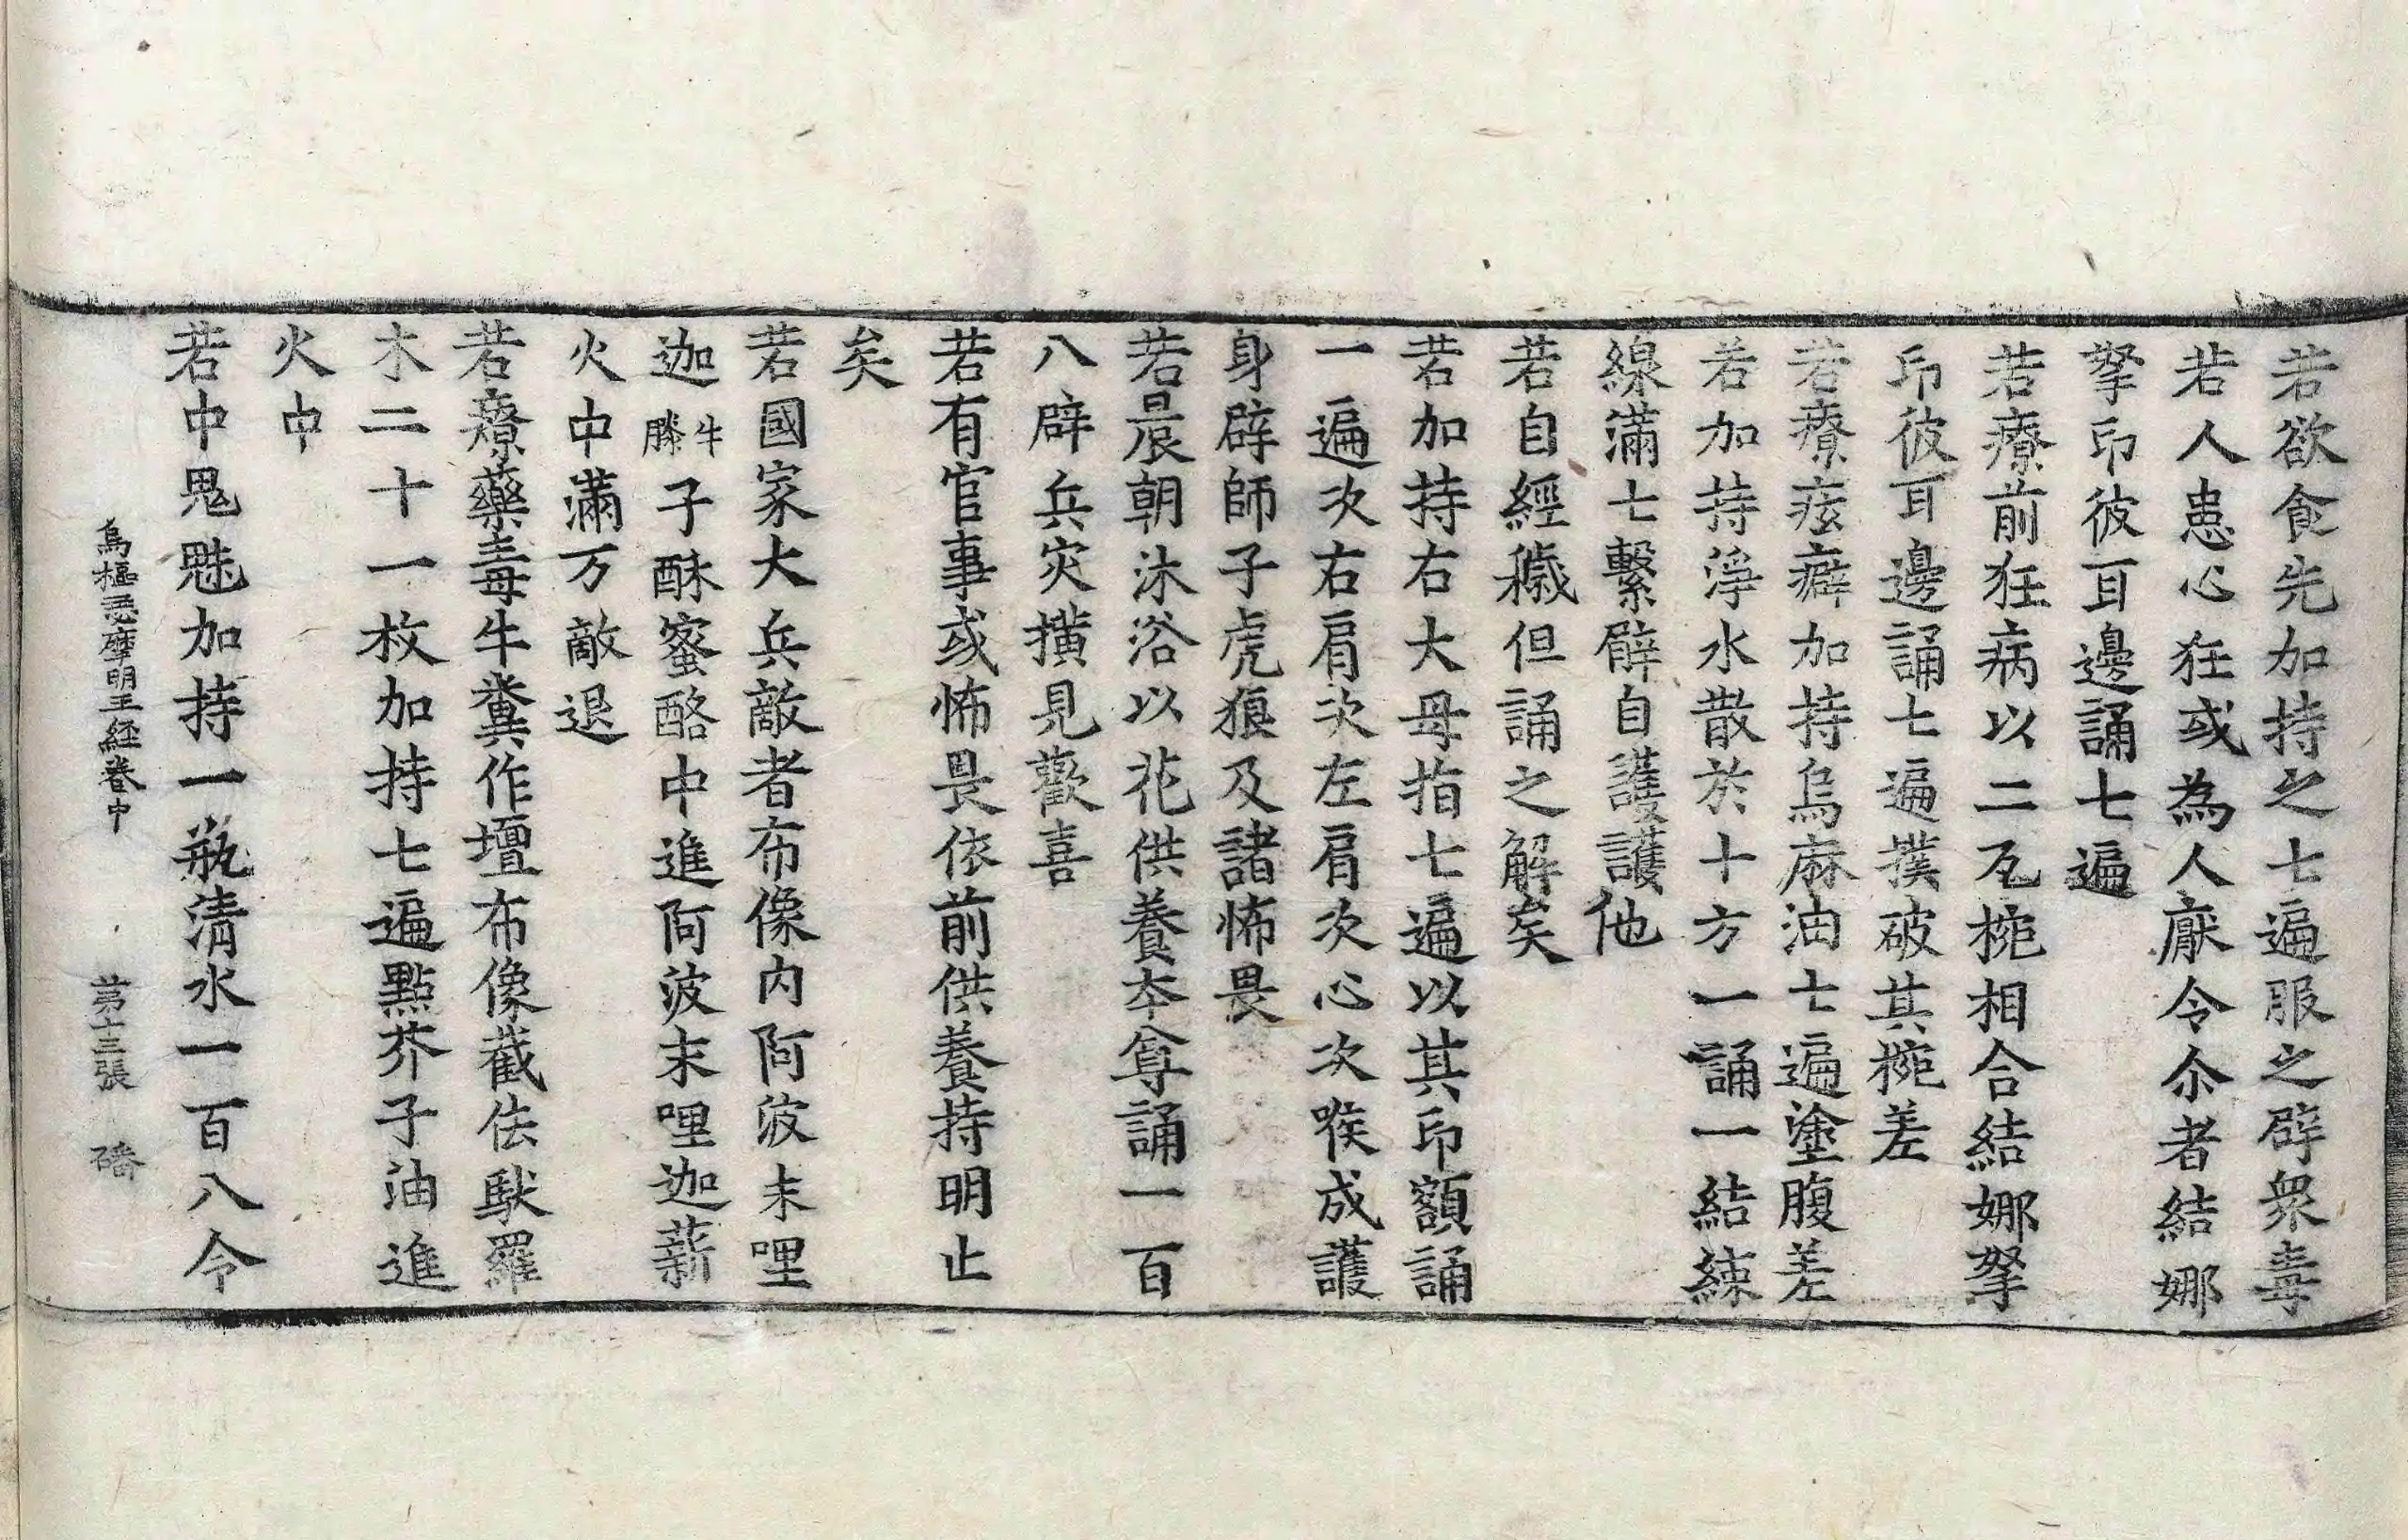 若欲食先加持之七遍服之辟衆毒
若人患心狂或為人厭令尒者結娜
拏印彼耳邊誦七遍
若療前狂病以二瓦椀相合結娜拏
印彼耳邊誦七遍撲破其椀差
若療痃癖加持烏麻油七遍塗腹差
若加持淨水散於十方一誦一結綀
線滿七繫臂自護護他
若自經穢但誦之解矣
若加持右大母指七遍以其印額誦
一遍次右肩次左肩次心次喉成護
身辟師子虎狼及諸怖畏
若晨朝沐浴以花供養本尊誦一百
八辟兵灾撗見歡喜
若有官事或怖畏依前供養持明止
矣
若國家大兵敵者布像内阿波末哩
迦牛膝子酥蜜酪中進阿波末哩迦薪
火中滿万敵退
若療藥毒牛糞作壇布像截佉馱羅
木二十一枚加持七遍點芥子油進
火中
若中鬼魅加持一瓶清水一百八令
烏樞瑟摩明王経卷中　第十三張　磻